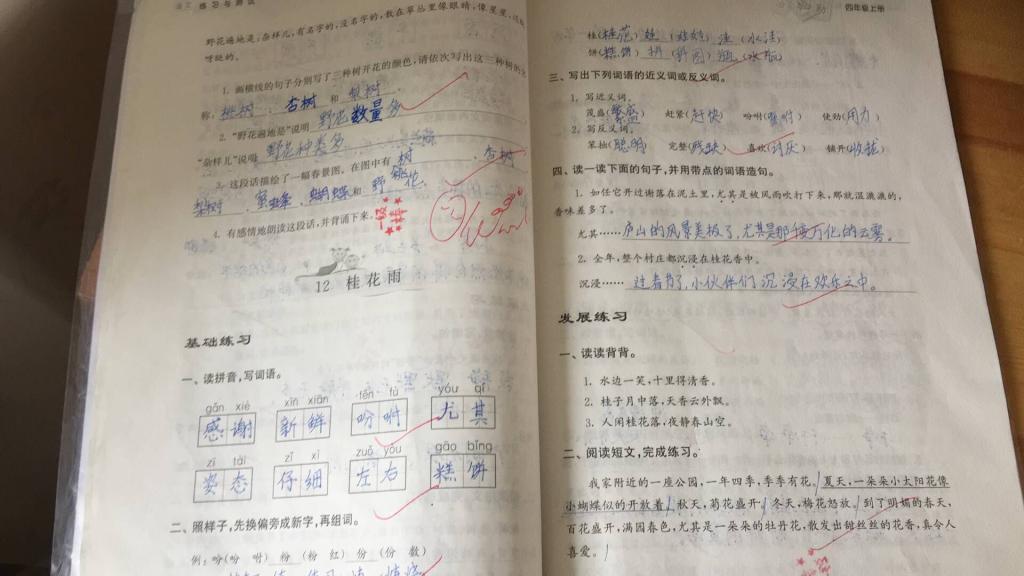 练习与测试
野花遍地是:杂样儿,有名字的,没名字的,散在草丛里像眼睛,像星星,还
呀眨的。
1. 画横线的句子分别写了三种树开花的颜色,请依次写出这三种树的名
称:桃树、杏树和梨树。
2. “野花遍地是”说明野花数量多
“杂样儿”说明野花种类多
3. 这段话描绘了一幅春景图。在图中有桃树、杏树、
梨树、蜜蜂、蝴蝶和野花。
4. 有感情地朗读这段话,并背诵下来。
12 桂花雨
基础练习
一、读拼音,写词语。
gǎn xiè xīn xiān fēn fù yóu qí
感谢 新鲜 吩咐 尤其
zī tài zǐ xì zuǒ yòu gāo bǐng
姿态 仔细 左右 糕饼
二、照样子,先换偏旁成新字,再组词。
例:吩(吩 咐) 粉(粉 红) 份(份 数)
四年级上册
桂( ) 娃(娃娃) 洼(水洼)
饼(糕饼) 拼( ) 瓶(水瓶)
三、写出下列词语的近义词或反义词。
1. 写近义词。
茂盛(繁盛) 赶紧(赶快) 吩咐( ) 使劲(用力)
2. 写反义词。
笨拙(聪明) 完整(残缺) 喜欢(讨厌) 铺开(收拢)
四、读一读下面的句子,并用带点的词语造句。
1. 如任它开过谢落在泥土里,尤其是被风雨吹打下来,那就湿漉漉的,
香味差多了。
尤其……庐山的风景美极了,尤其是那千变万化的云雾。
2. 全年,整个村庄都沉浸在桂花香中。
沉浸……过春节了,小伙伴们沉浸在欢乐之中。
发展练习
一、读读背背。
1. 水边一笑,十里得清香。
2. 桂子月中落,天香云外飘。
3. 人闲桂花落,夜静春山空。
二、阅读短文,完成练习。
我家附近的一座公园,一年四季,季季有花。夏天,一朵朵小太阳花像
小蝴蝶似的开放着;秋天,菊花盛开;冬天,梅花怒放。到了明媚的春天,
百花盛开,满园春色,尤其是一朵朵的牡丹花,散发出甜丝丝的花香,真令人
喜爱。